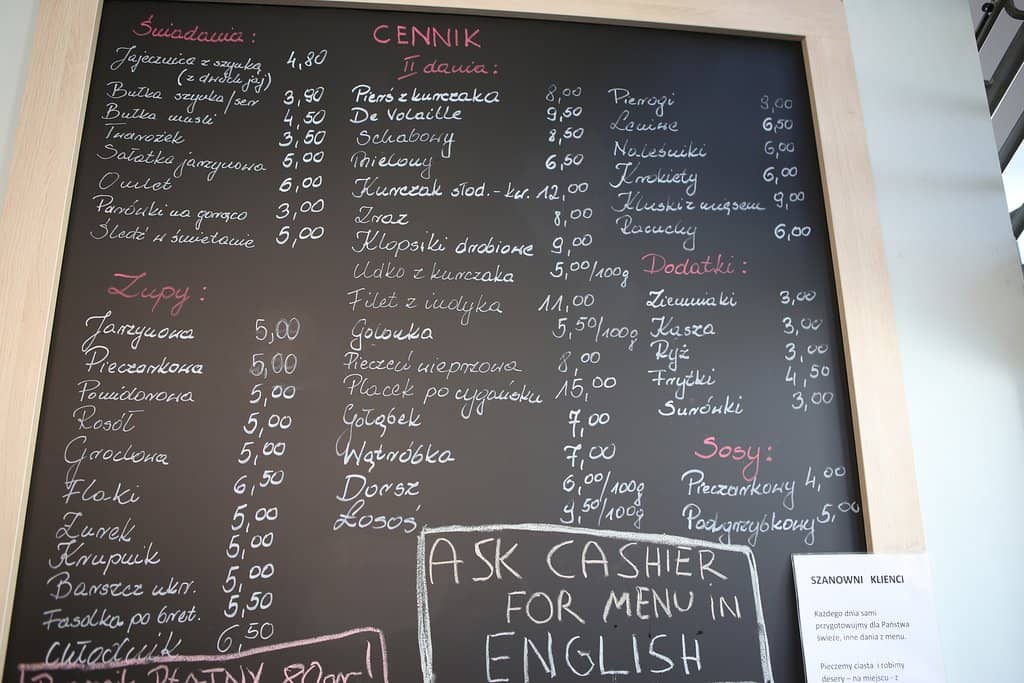 Śniadania:
Jajecznica z szynką 4,80
(z dwóch jaj)
Bułka szynka/ser 3,90
Bułka musli 4,50
Twarożek 3,50
Sałatka jarzynowa 5,00
Omlet 6,00
Parówki na gorąco 3,00
Śledź w śmietanie 5,00
Zupy:
Jarzynowa 5,00
Pieczarkowa 5,00
Pomidorowa 5,00
Rosół 5,00
Grochowa 5,00
Flaki 6,50
Żurek 5,00
Krupnik 5,00
Barszcz ukr. 5,00
Fasolka po bret. 5,50
Chłodnik 6,50
PŁATNY 80gr!
CENNIK
II dania:
Pierś z kurczaka 8,00
De Volaille 9,50
Schabowy 8,50
Mielony 6,50
Kurczak słod.-kw. 12,00
Zraz 8,00
Klopsiki drobiowe 9,00
Udko z kurczaka 5,00/100g
Filet z indyka 11,00
Golonka 5,50/100g
Pieczeń wieprzowa 8,00
Placek po cygańsku 15,00
Gołąbek 7,00
Wątróbka 7,00
Dorsz 6,00/100g
Łosoś 9,50/100g
Pierogi 9,00
Leniwe 6,50
Naleśniki 6,00
Krokiety 6,00
Kluski z mięsem 9,00
Racuchy 6,00
Dodatki:
Ziemniaki 3,00
Kasza 3,00
Ryż 3,00
Frytki 4,50
Surówki 3,00
Sosy:
Pieczarkowy 4,00
Podgrzybkowy 5,00
ASK CASHIER
FOR MENU IN
ENGLISH
SZANOWNI KLIENCI
Każdego dnia sami
przygotowujmy dla Państwa
świeże, inne dania z menu.
Pieczemy ciasta i robimy
desery – na miejscu - z